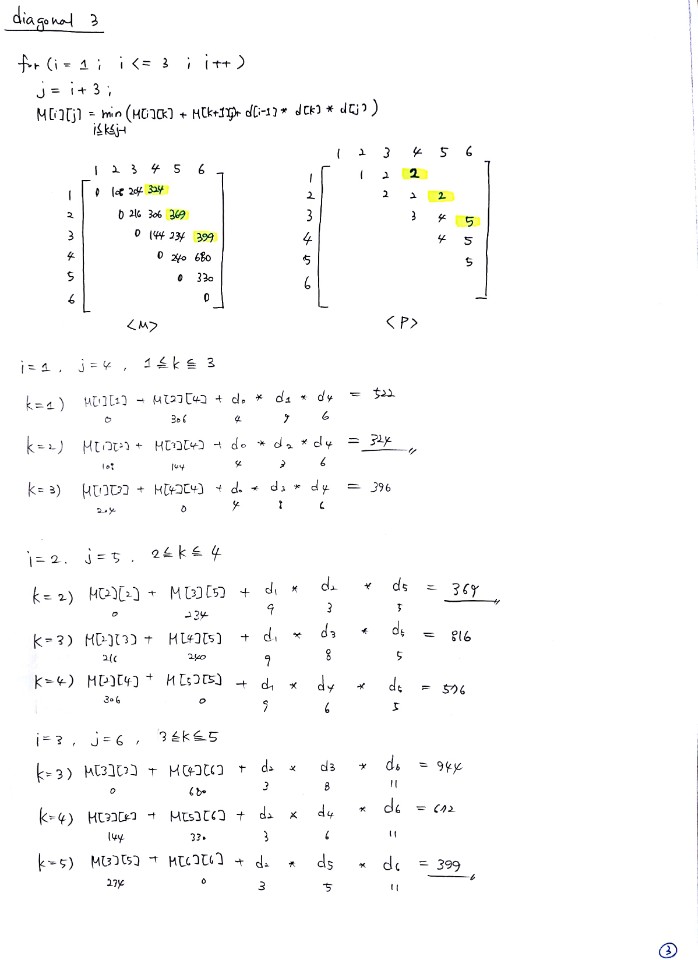 diagonal 3
for (i = 1 ; i <= 3 ; i++)
j = i + 3 ;
M[i][j] = min (M[i][k] + M[k+1][j] + d[i-1] * d[k] * d[j])
i≤k≤j-1
1 2 3 4 5 6
1 0 108 204 324
2 0 216 306 369
3 0 144 234 399
4 0 240 680
5 0 330
6 0
<M>
1 2 3 4 5 6
1 1 2 2
2 2 2 2
3 3 4 5
4 4 5
5 5
6
<P>
i=1, j=4, 1≤k≤3
k=1) M[1][1] + M[2][4] + d₀ * d₁ * d₄ = 522
0 306 4 9 6
k=2) M[1][2] + M[3][4] + d₀ * d₂ * d₄ = 324
108 144 4 3 6
k=3) M[1][3] + M[4][4] + d₀ * d₃ * d₄ = 396
204 0 4 8 6
i=2, j=5, 2≤k≤4
k=2) M[2][2] + M[3][5] + d₁ * d₂ * d₅ = 369
0 234 9 3 5
k=3) M[2][3] + M[4][5] + d₁ * d₃ * d₅ = 816
216 240 9 8 5
k=4) M[2][4] + M[5][5] + d₁ * d₄ * d₅ = 576
306 0 9 6 5
i=3, j=6, 3≤k≤5
k=3) M[3][3] + M[4][6] + d₂ * d₃ * d₆ = 944
0 680 3 8 11
k=4) M[3][4] + M[5][6] + d₂ * d₄ * d₆ = 672
144 330 3 6 11
k=5) M[3][5] + M[6][6] + d₂ * d₅ * d₆ = 399
234 0 3 5 11
3